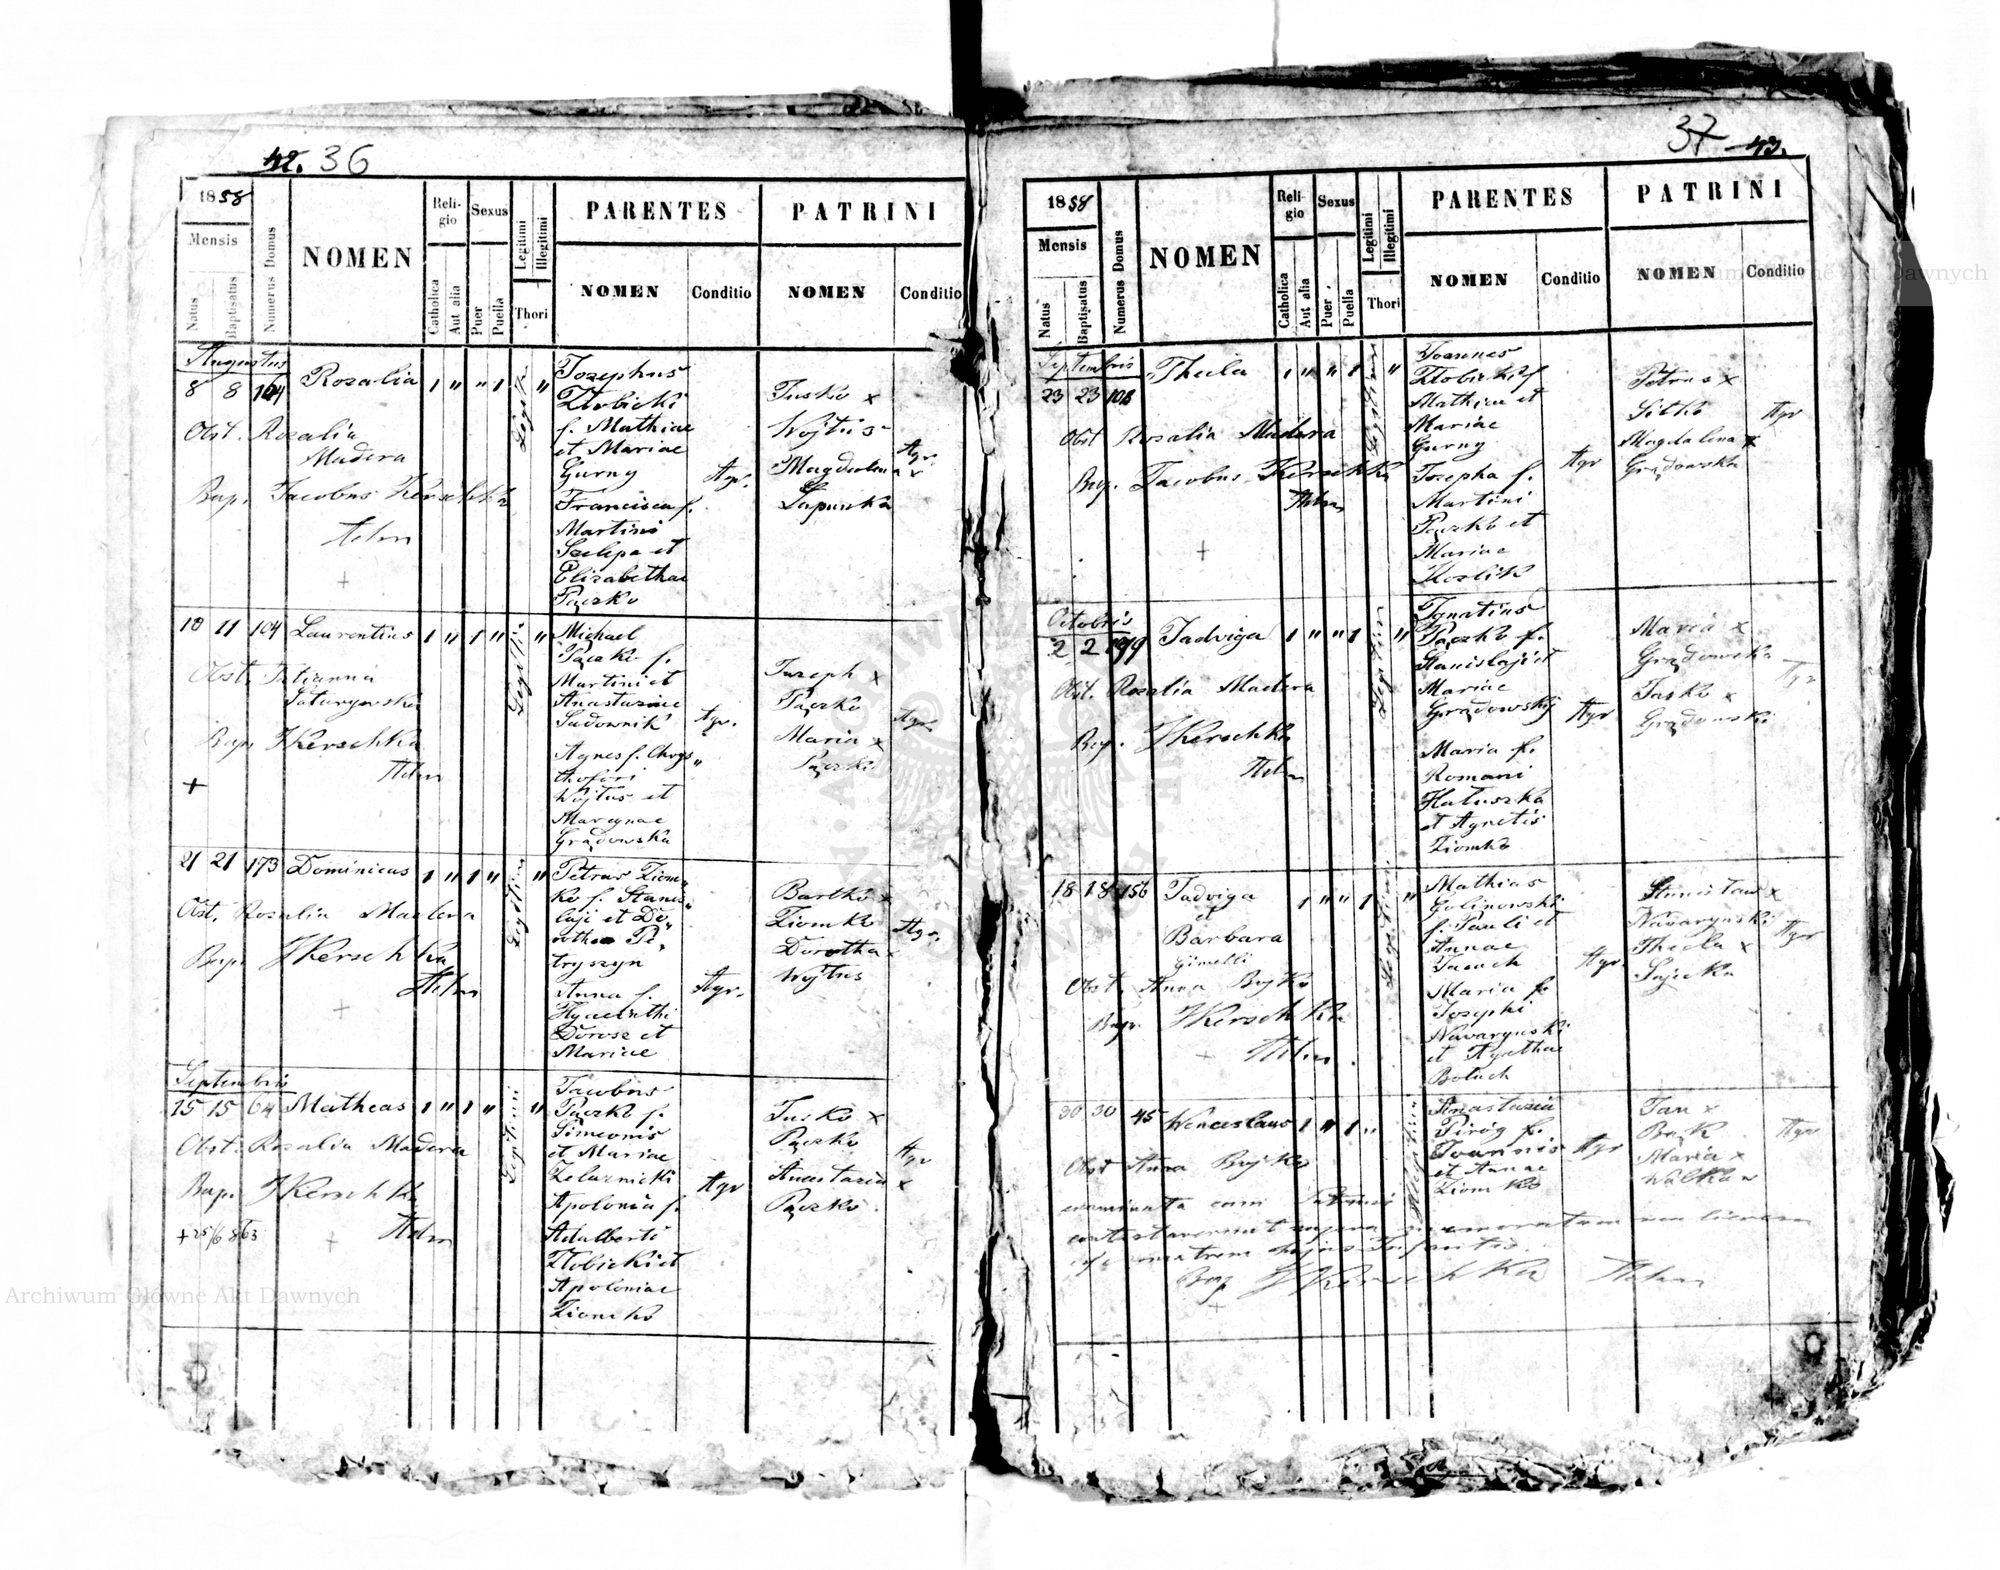 42. 36
1858
Mensis
Natus
Baptisatus
Numerus Domus
NOMEN
Religio
Catholica
Aut alia
Sexus
Puer
Puella
Legitimi
Illegitimi
Thori
PARENTES
NOMEN
Conditio
PATRINI
NOMEN
Conditio
Augustus
8 8 164 Rosalia 1 " " 1 "
Obst. Rosalia
Madera
Bap. Jacobus Kerschka
Adm
Josephus
Złobicki
f. Mathiae
et Mariae
Gurny
Francisca f.
Martini
Szelepa et
Elizabethae
Pączko
Agr.
Jusko x
Wojtus
Magdalena x
Łapunka
Agr.
10 11 104 Laurentius 1 " 1 " "
Obst. Tatianna
Bap. JKerschka
Adm
+
Michael
Pączko f.
Martini et
Anastasiae
Sadownik
Agnes f. Chrys"
thofori
Wojtus et
Marynae
Grądowska
Agr.
Jozeph x
Pączko
Maria x
Pączko
Agr.
21 21 173 Dominicus 1 " 1 " "
Obst. Rosalia Madera
Bap. JKerschka
Adm
Petrus Ziom"
ko f. Stanis"
laji et Do"
rothea Pe"
tryszyn
Anna f.
Hyacinthi
Dorosz et
Mariae
Agr.
Bartko x
Ziomko
Dorotha x
Wojtus
Agr.
Septembris
15 15 64 Matheas 1 " 1 " "
Obst. Rosalia Madera
Bap. JKerschka
Adm
+ 25/6 863
Jacobus
Pączko f.
Simeonis
et Mariae
Zelaznicki
Apolonia f.
Adalberti
Złobicki et
Apoloniae
Ziomko
Agr
Jusko x
Pączko
Anastasia x
Pączko
Agr
37 43.
1858
Mensis
Natus
Baptisatus
Numerus Domus
NOMEN
Religio
Catholica
Aut alia
Sexus
Puer
Puella
Legitimi
Illegitimi
Thori
PARENTES
NOMEN
Conditio
PATRINI
NOMEN
Conditio
Septembris
23 23 108 Thecla 1 " " 1 "
Obst Rosalia Madera
Bap. Jacobus Kerschka
Adm
Joannes
Złobicki f.
Mathiae et
Mariae
Gurny
Josepha f.
Martini
Pączko et
Mariae
Kozlik
Agr
Petrus x
Sitko
Magdalena x
Grądowska
Agr
Octobris
2 2 199 Jadviga 1 " " 1 "
Obst. Rosalia Madera
Bap. JKerschka
Adm
Ignatius
Pączko f.
Stanislaji et
Mariae
Grądowskij
Maria f.
Romani
Hałuszka
et Agnetis
Ziomko
Agr
Maria x
Grądowska
Jasko x
Grądowski
Agr
18 18 156 Jadviga 1 " " 1 "
et
Barbara
Gimelli
Obst. Anna Bojko
Bap. JKerschka
Adm
Mathias
Golinowski
f. Pauli et
Annae
Maria f.
Josephi
Navarynski
et Agathae
Agr.
Stanislaus x
Navarynski
Thecla x
Agr
30 30 45 Wenceslaus 1 " 1 "
Obst Anna Bojko
Anastazia
Piróg f.
Joannis
et Annae
Ziomko
Agr
Jan x
Bąk
Maria x
Agr
matrem hujus Infantis.
Bap JKerschka Adm
Archiwum Główne Akt Dawnych
Archiwum Główne Akt Dawnych